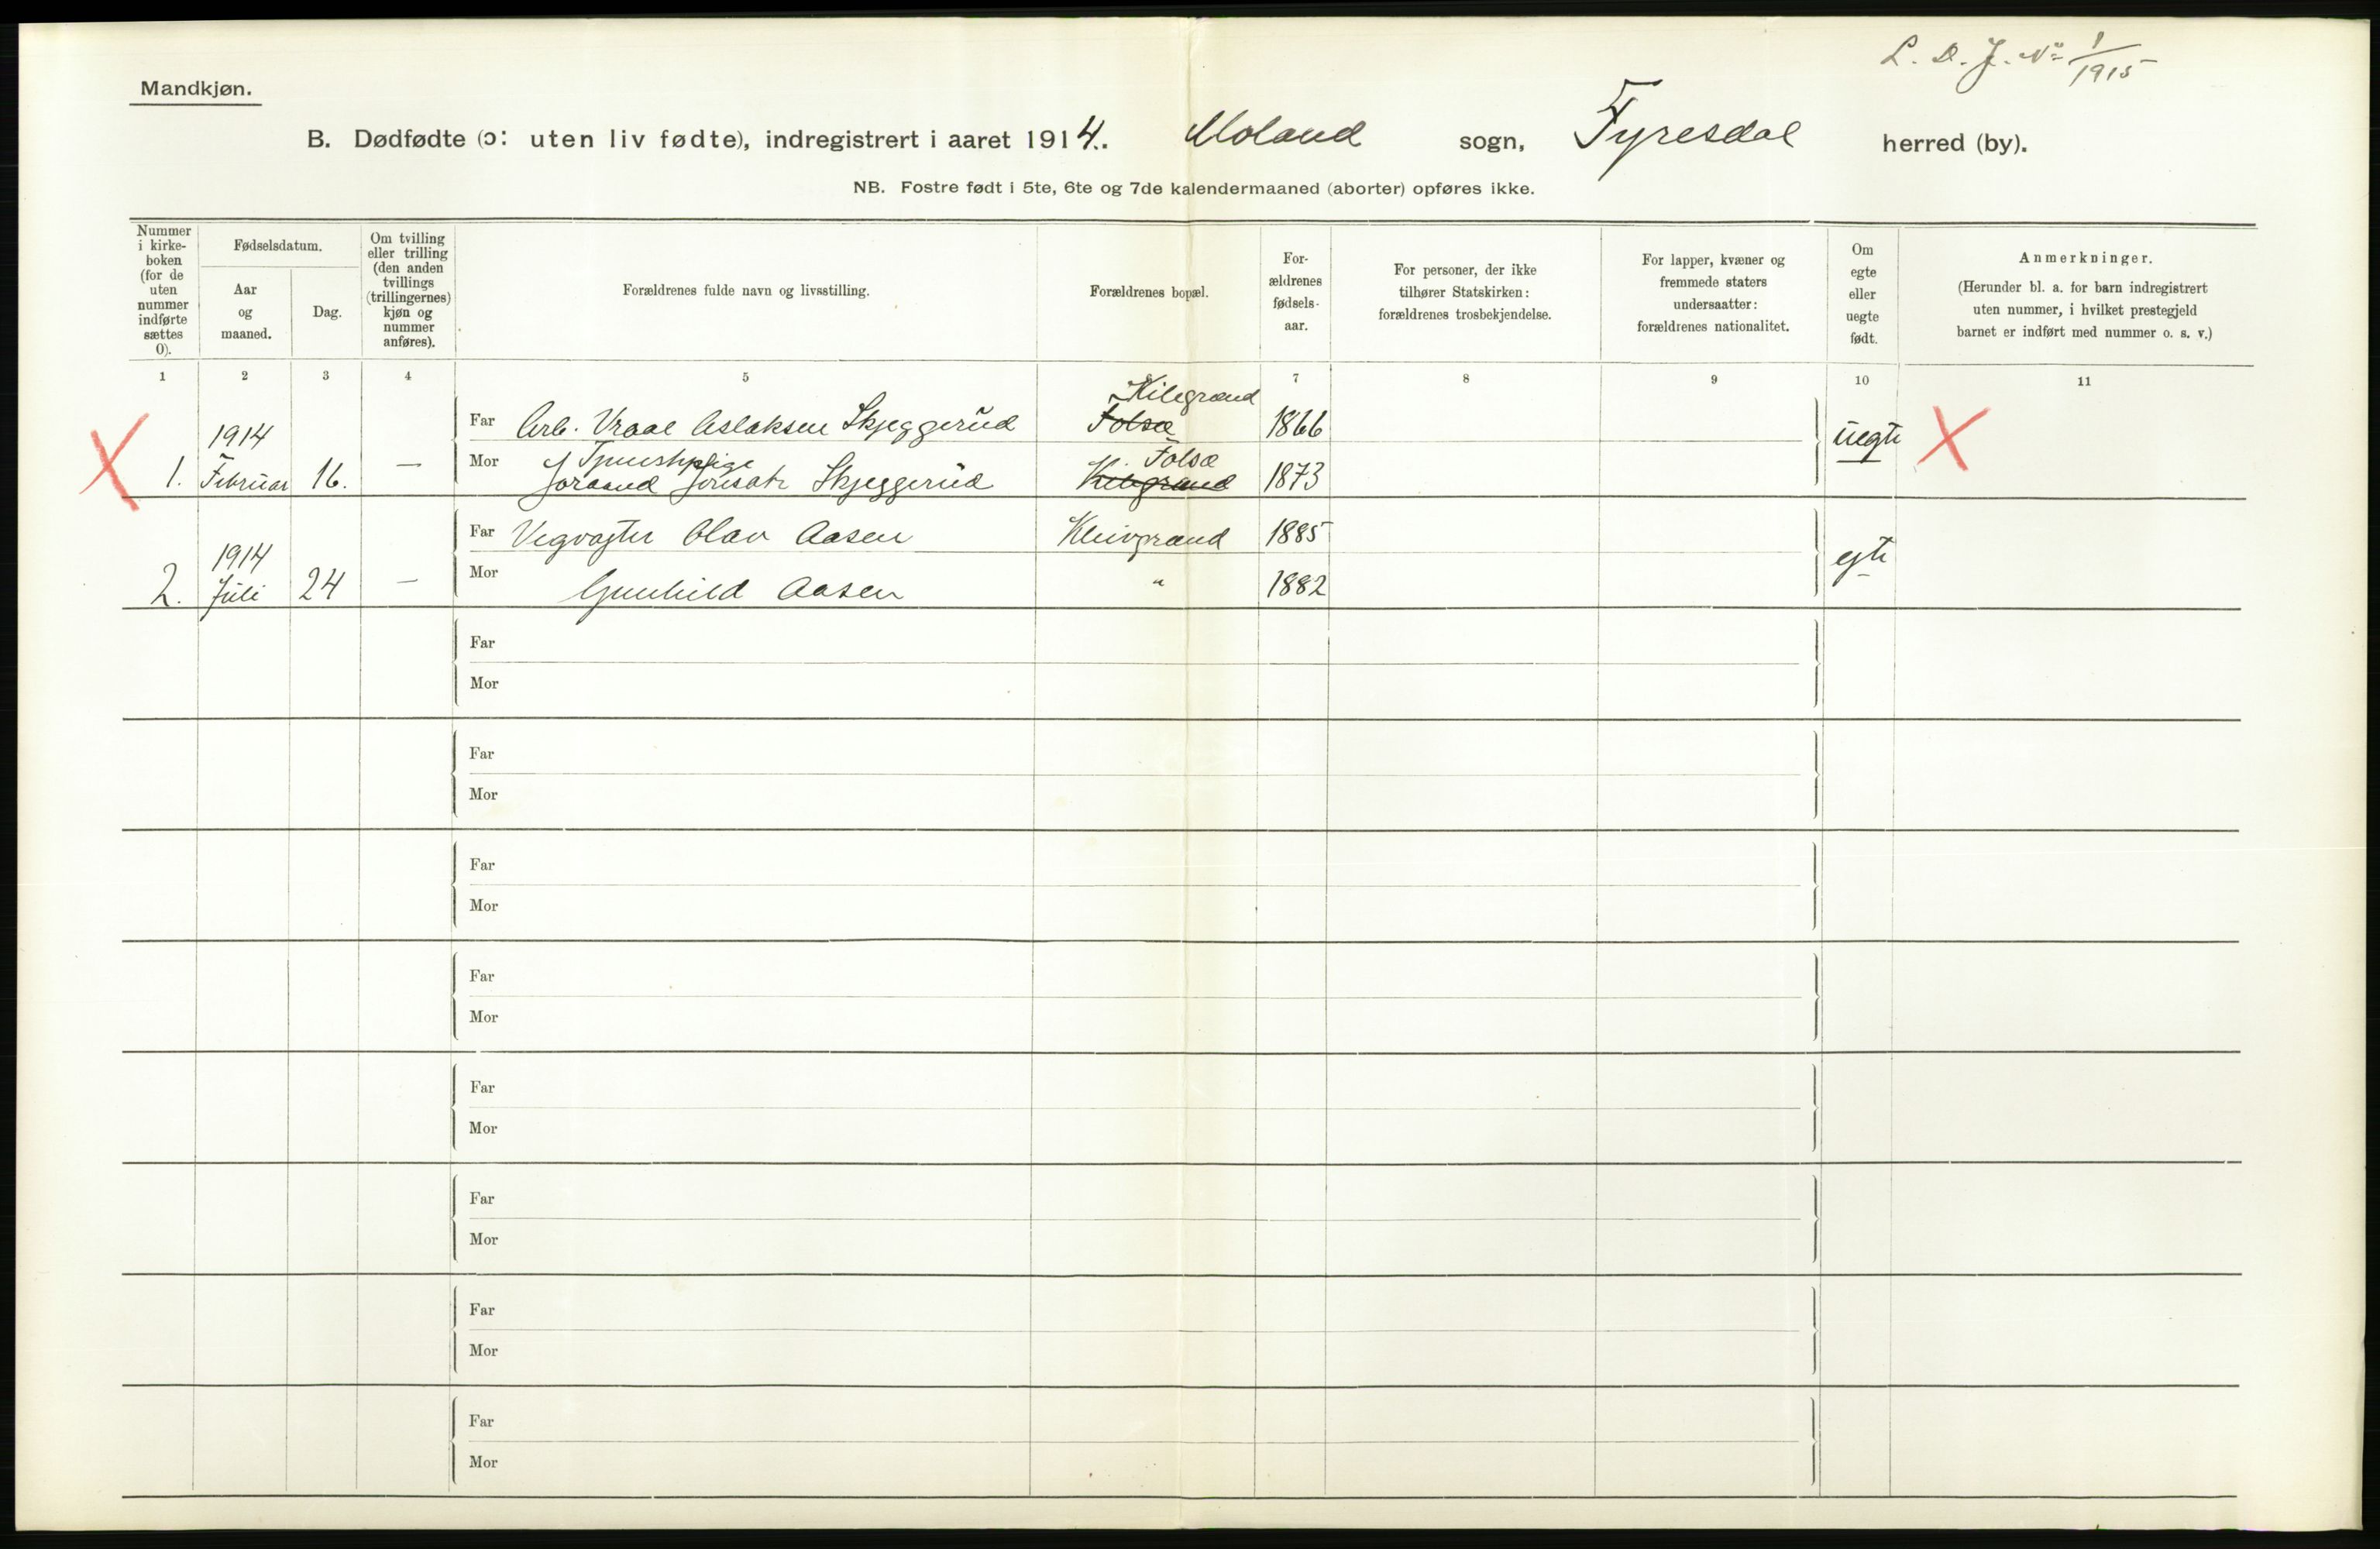 L. D. J. № 1/1915
Mandkjøn.
B. Dødfødte (ɔ: uten liv fødte), indregistrert i aaret 1914. Moland sogn, Fyresdal herred (by).
NB. Fostre født i 5te, 6te og 7de kalendermaaned (aborter) opføres ikke.
Nummer
i kirke-
boken
(for de
uten
nummer
indførte
sættes
0).
Fødselsdatum.
Aar
og
maaned.
Dag.
Om tvilling
eller trilling
(den anden
tvillings
(trillingernes)
kjøn og
nummer
anføres).
Forældrenes fulde navn og livsstilling.
Forældrenes bopæl.
For-
ældrenes
fødsels-
aar.
For personer, der ikke
tilhører Statskirken:
forældrenes trosbekjendelse.
For lapper, kvæner og
fremmede staters
undersaatter:
forældrenes nationalitet.
Om
egte
eller
uegte
født.
Anmerkninger.
(Herunder bl. a. for barn indregistrert
uten nummer, i hvilket prestegjeld
barnet er indført med nummer o. s. v.)
1 2 3 4 5 6 7 8 9 10 11
Kilegrand
1914 Far Arb. Vraal Aslaksen Skjeggerud Folsæ 1866 uegte
Tjenestepige Folsæ
1. Februar 16. — Mor Joraand Skjeggerud Kilegrand 1873
1914 Far Vegvogter Olav Aasen Kleivgrand 1885 egte
2. Juli 24 — Mor Gunhild Aasen " 1882
Far
Mor
Far
Mor
Far
Mor
Far
Mor
Far
Mor
Far
Mor
Far
Mor
Far
Mor